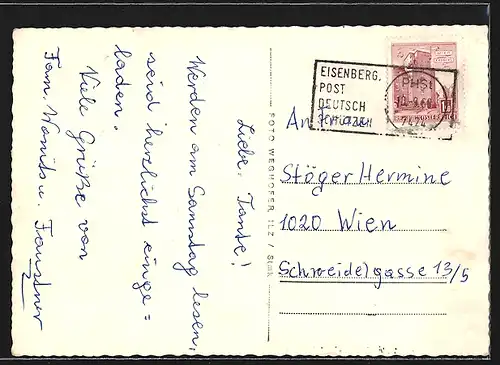 Liebe Tante!
Werden am Samstag lesen,
seid herzlichst einge=
laden.
Viele Grüße von
Fam. Wonisch u. Faustner
FOTO WEGHOFER ILZ / Stmk
EISENBERG,
POST
DEUTSCH
SCHÜTZEN
An Frau
Stöger Hermine
1020 Wien
Schreidelgasse 13/5